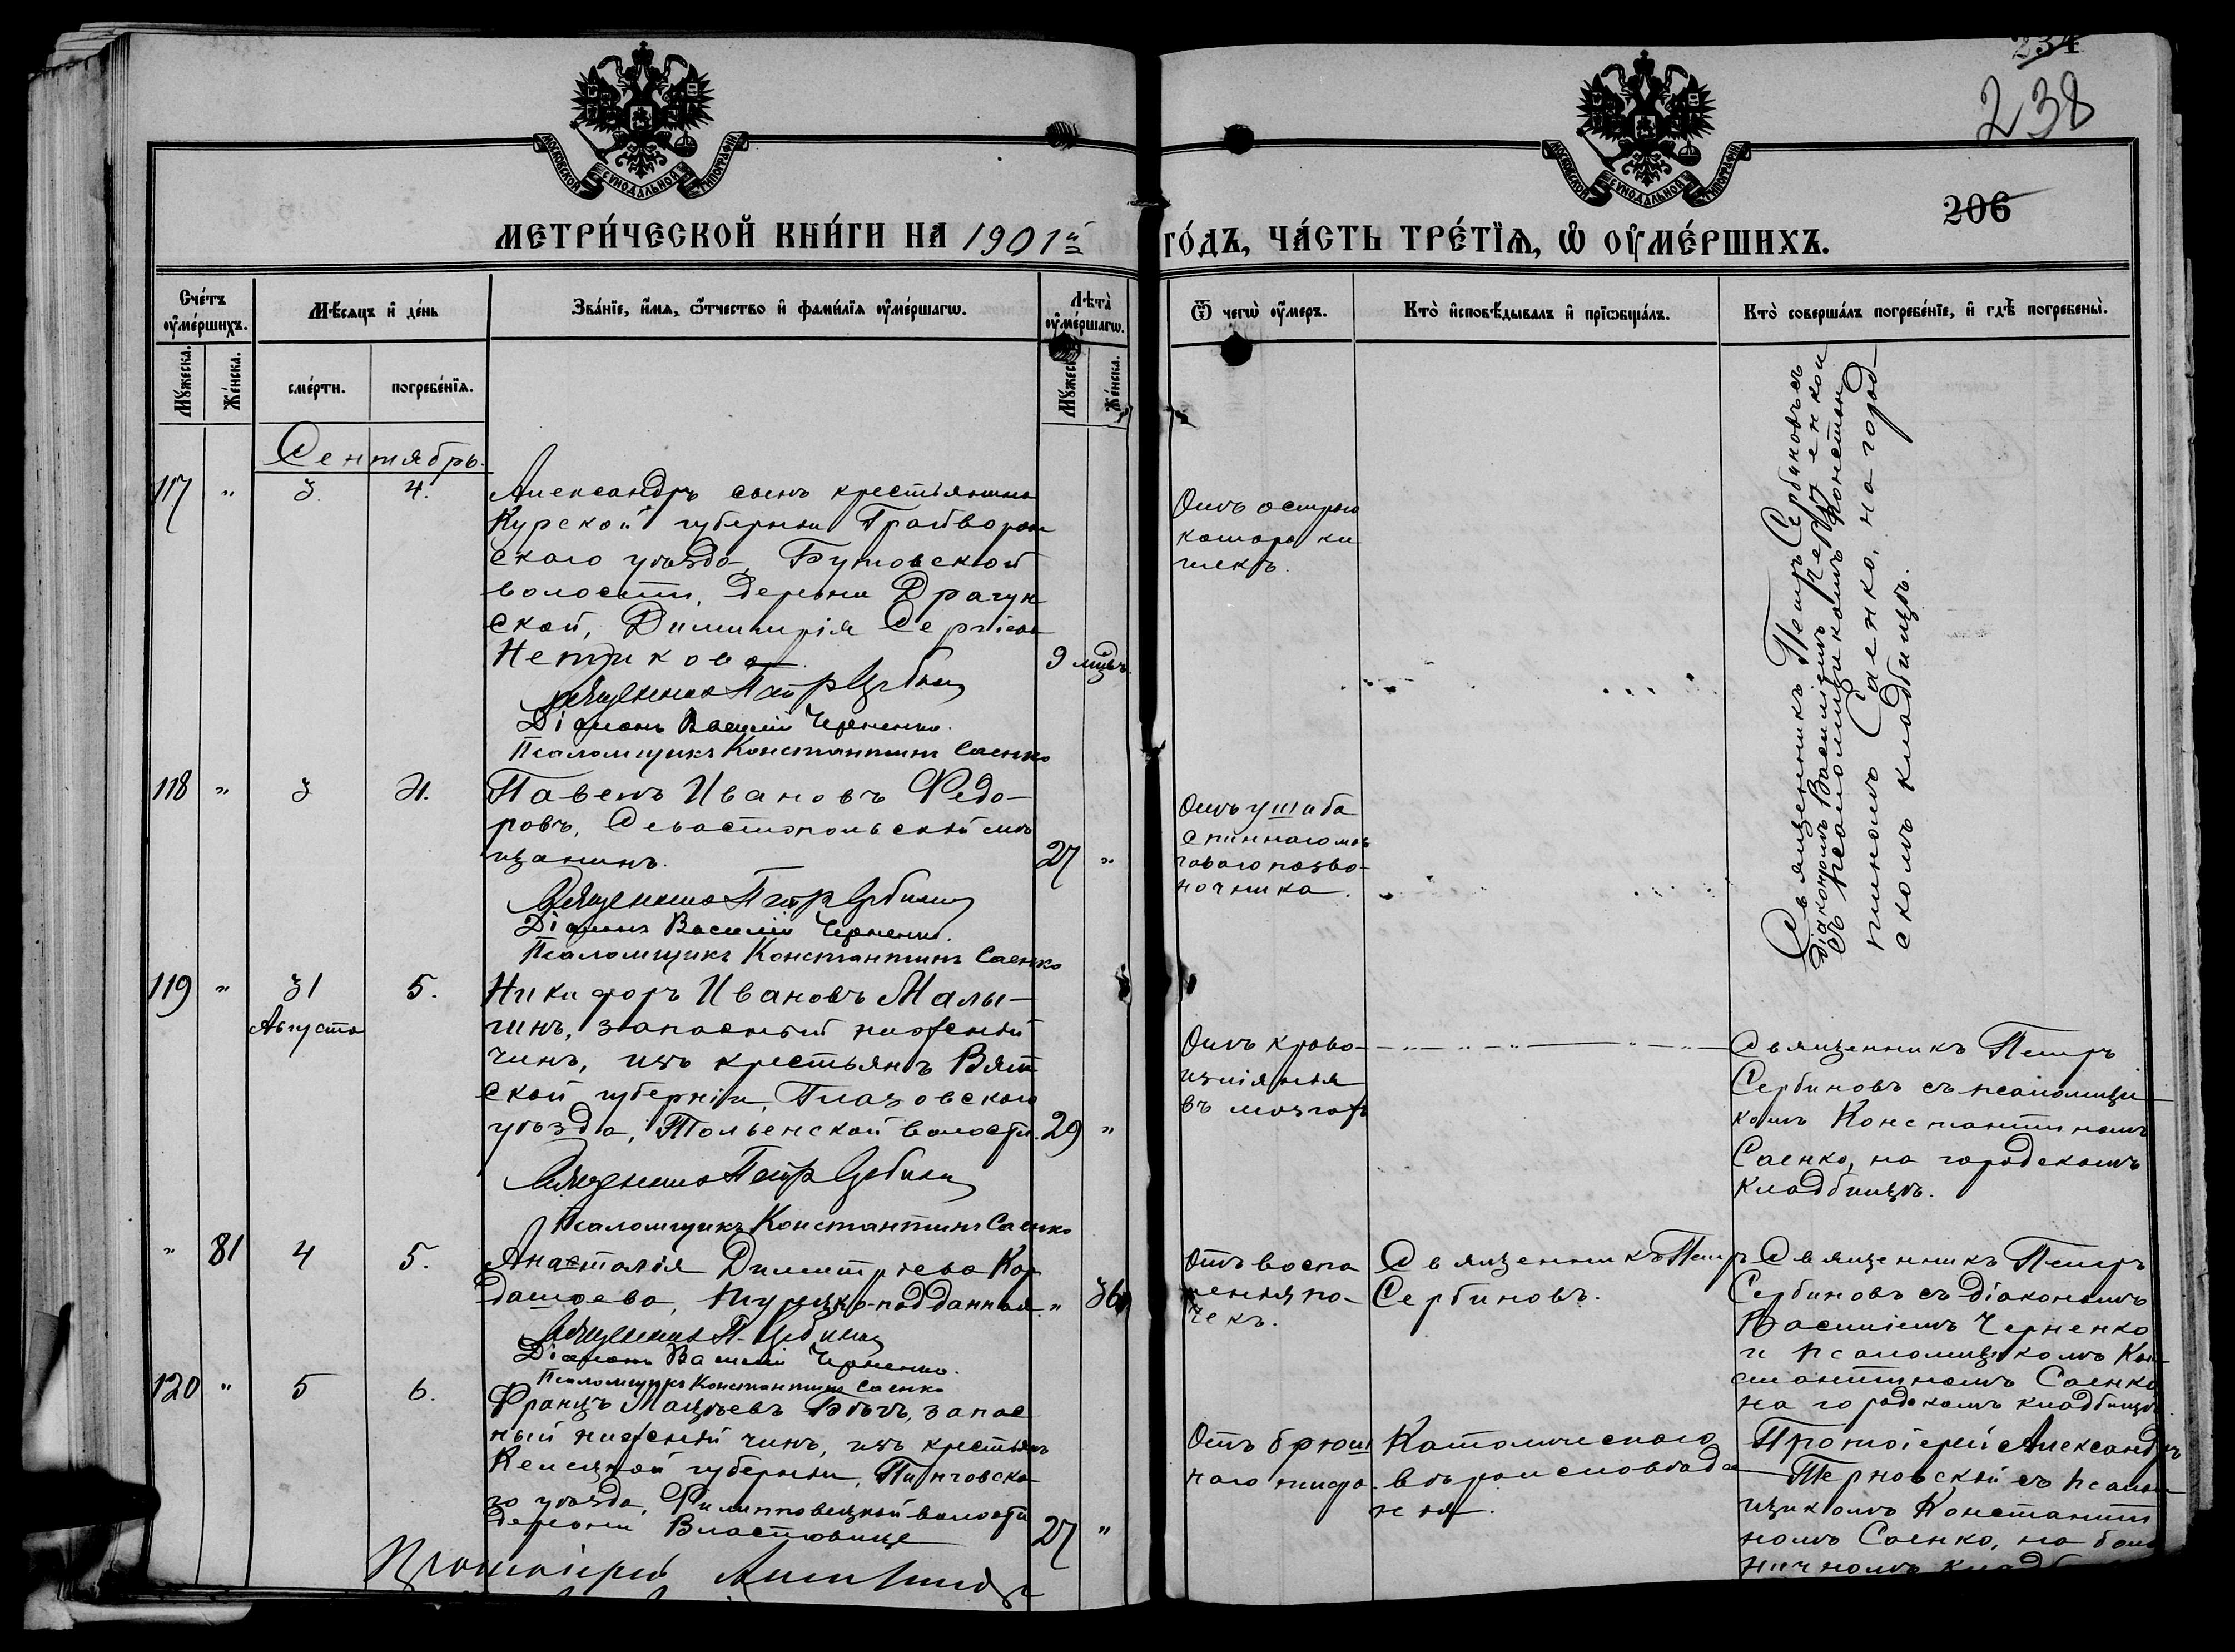 234
238
206
МОСКОВСКОЙ СѴНОДАЛЬНОЙ ТИПОГРАФІИ.
МОСКОВСКОЙ СѴНОДАЛЬНОЙ ТИПОГРАФІИ.
МЕТРИ́ЧЕСКОЙ КНИ́ГИ НА 1901й
ГО́ДЪ, ЧА́СТЬ ТРЕ́ТЇѦ, Ѡ ОУ҆МЕ́РШИХЪ.
Сче́тъ оу҆ме́ршихъ.
Мѣ́сяцъ и҆ де́нь
Зва́нїе, и҆́мя, ѻ҆́тчество и҆ фами́лїя оу҆ме́ршагѡ.
Лѣта̀ оу҆ме́ршагѡ.
Ѿ чегѡ̀ оу҆́меръ.
Кто̀ и҆сповѣ́дывалъ и҆ прїѡбща́лъ.
Кто̀ соверша́лъ погребе́нїе, и҆ гдѣ̀ погребены̀.
Мꙋ́жеска.
Же́нска.
сме́рти.
погребе́нїя.
Мꙋ́жеска.
Же́нска.
Сентябрь.
117 " 3. 4.
Александръ сынъ крестьянина
Курской губерніи Грайворон
скаго уѣзда, Бутовской
волости, деревни Драгун
ской, Димитрія Сергіева
Нетикова 9 мцвъ.
Священникъ Петръ Сербиновъ
Діаконъ Василій Черненко.
Псаломщикъ Константинъ Саенко
Отъ остраго
катара ки
шекъ.
Священникъ Петръ Сербиновъ съ
діакономъ Василіемъ Черненкой
съ псаломщикомъ Констан
тиномъ Саенко, на город
скомъ кладбищѣ.
118 " 3 4.
Павелъ Ивановъ Федо-
ровъ, Севастопольскій мѣ
щанинъ. 27 "
Священникъ Петръ Сербиновъ
Діаконъ Василій Черненко.
Псаломщикъ Константинъ Саенко
Отъ ушиба
спиннаго моз
говаго позво-
ночника.
119 " 31 5.
Августа
Никифоръ Ивановъ Малы-
гинъ, запасный нижній
чинъ, изъ крестьянъ Вят
ской губерніи, Глазовскаго
уѣзда, Тольенской волости. 29 "
Священникъ Петръ Сербиновъ
Псаломщикъ Константинъ Саенко
Отъ крово-
изліянія
въ мозгахъ
Священникъ Петръ
Сербиновъ съ псаломщи
комъ Константиномъ
Саенко, на городскомъ
кладбищѣ.
" 81 4 5.
Анастасія Димитріева Кор
дашева, Турецко-подданная. " 36
Священникъ П. Сербиновъ
Діаконъ Василій Черненко.
Псаломщикъ Константинъ Саенко
Отъ воспа
ленія по-
чекъ.
Священникъ Петръ
Сербиновъ.
Священникъ Петръ
Сербиновъ съ діакономъ
Василіемъ Черненко
и псаломщикомъ Кон-
стантиномъ Саенко
на городскомъ кладбищѣ.
120 " 5 6.
Францъ Мацѣевъ запас
ный нижній чинъ, изъ крестьянъ
Келецкой губерніи, Пинчовска-
го уѣзда, Филипповецкой волости
деревни Властовице 27 "
Протоіерей Александръ
Отъ брюш
наго тифа.
Католическаго
вѣроисповѣда
нія.
Протоіерей Александръ
Терновскій съ псалом-
щикомъ Константи
номъ Саенко, на боль
ничномъ